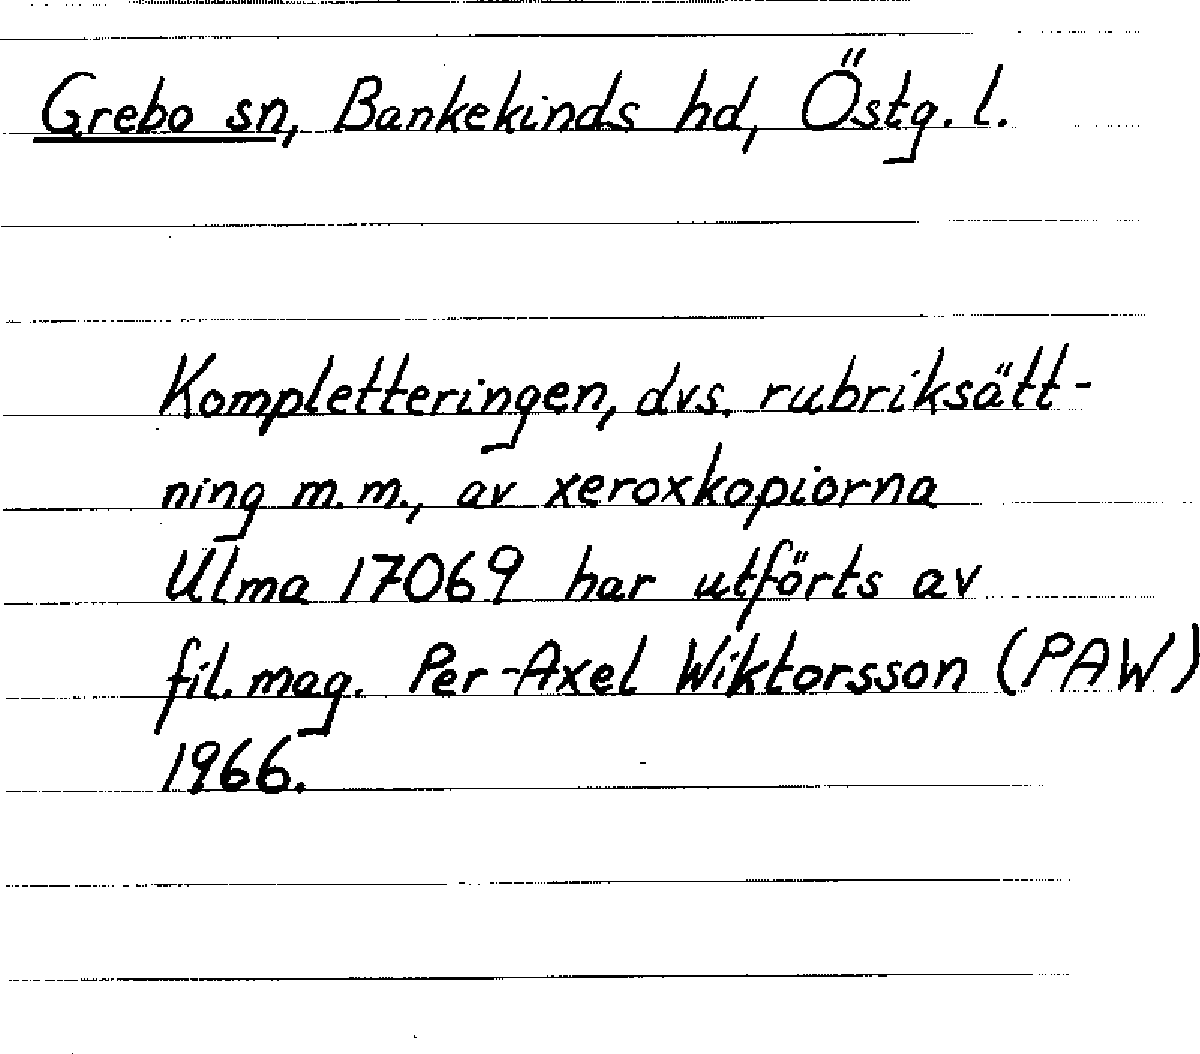 Grebo sn, Bankekinds hd, Östg. l.
Kompletteringen, dvs. rubriksätt-
ning m.m., av xeroxkopiorna
Ulma 17069 har utförts av
fil. mag. Per-Axel Wiktorsson (PAW)
1966.